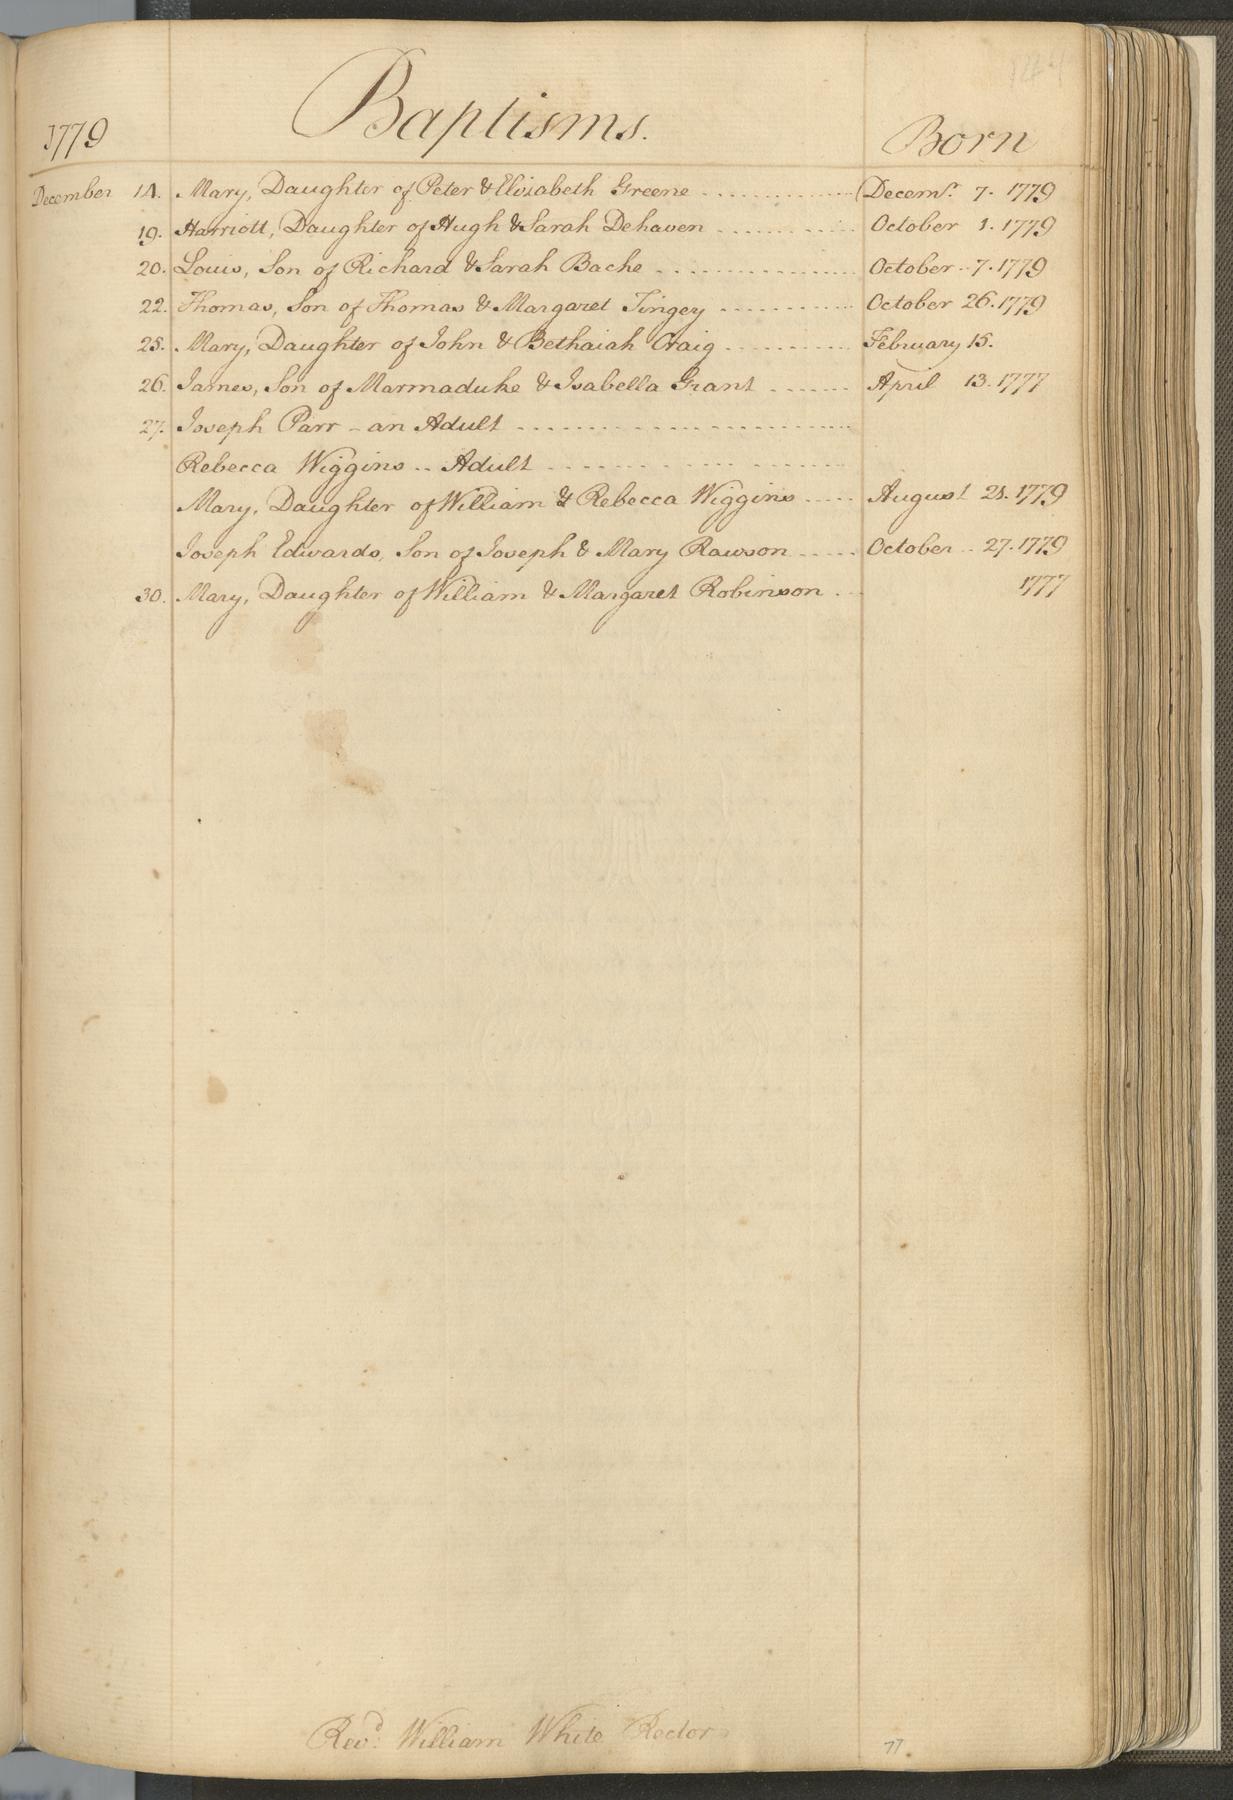 1779 Baptisms. Born
December 14. Mary, Daughter of Peter & Elizabeth Greene ............ Decemr. 7. 1779
19. Harriott, Daughter of Hugh & Sarah Dehaven ............ October 1. 1779
20. Louis, Son of Richard & Sarah Bache ............ October 7. 1779
22. Thomas, Son of Thomas & Margaret Tingey ............ October 26. 1779
25. Mary, Daughter of John & Bethaiah Craig ............ February 15.
26. James, Son of Marmaduke & Isabella Grant ...... April 13. 1777
27. Joseph Parr - an Adult ............
Rebecca Wiggins .. Adult ............
Mary, Daughter of William & Rebecca Wiggins ..... August 21. 1779
Joseph Edwards, Son of Joseph & Mary Rawson ..... October .. 27. 1779
30. Mary, Daughter of William & Margaret Robinson ... 1777
Revd. William White Rector
77